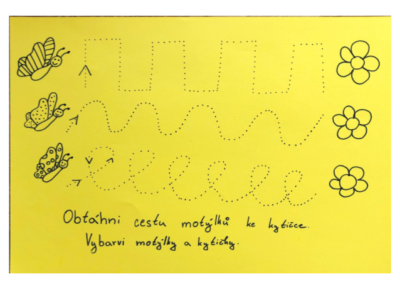 Obtáhni cestu motýlků ke kytičce.
Vybarvi motýlky a kytičky.